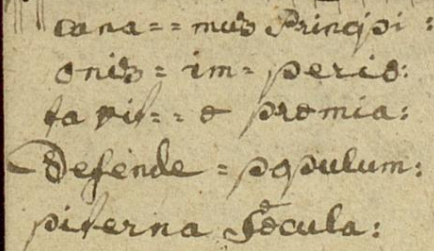 cana = = mus Principi :
onis = im = perio :
ta vit = = o promia :
Defende = populum :
piterna Sẽcula :